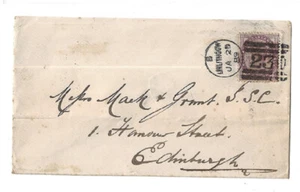 LINLITHGOW
B
JA 29
89
23
Messrs Mack & Grant. S.S.C.
1. Hanover Street.
Edinburgh